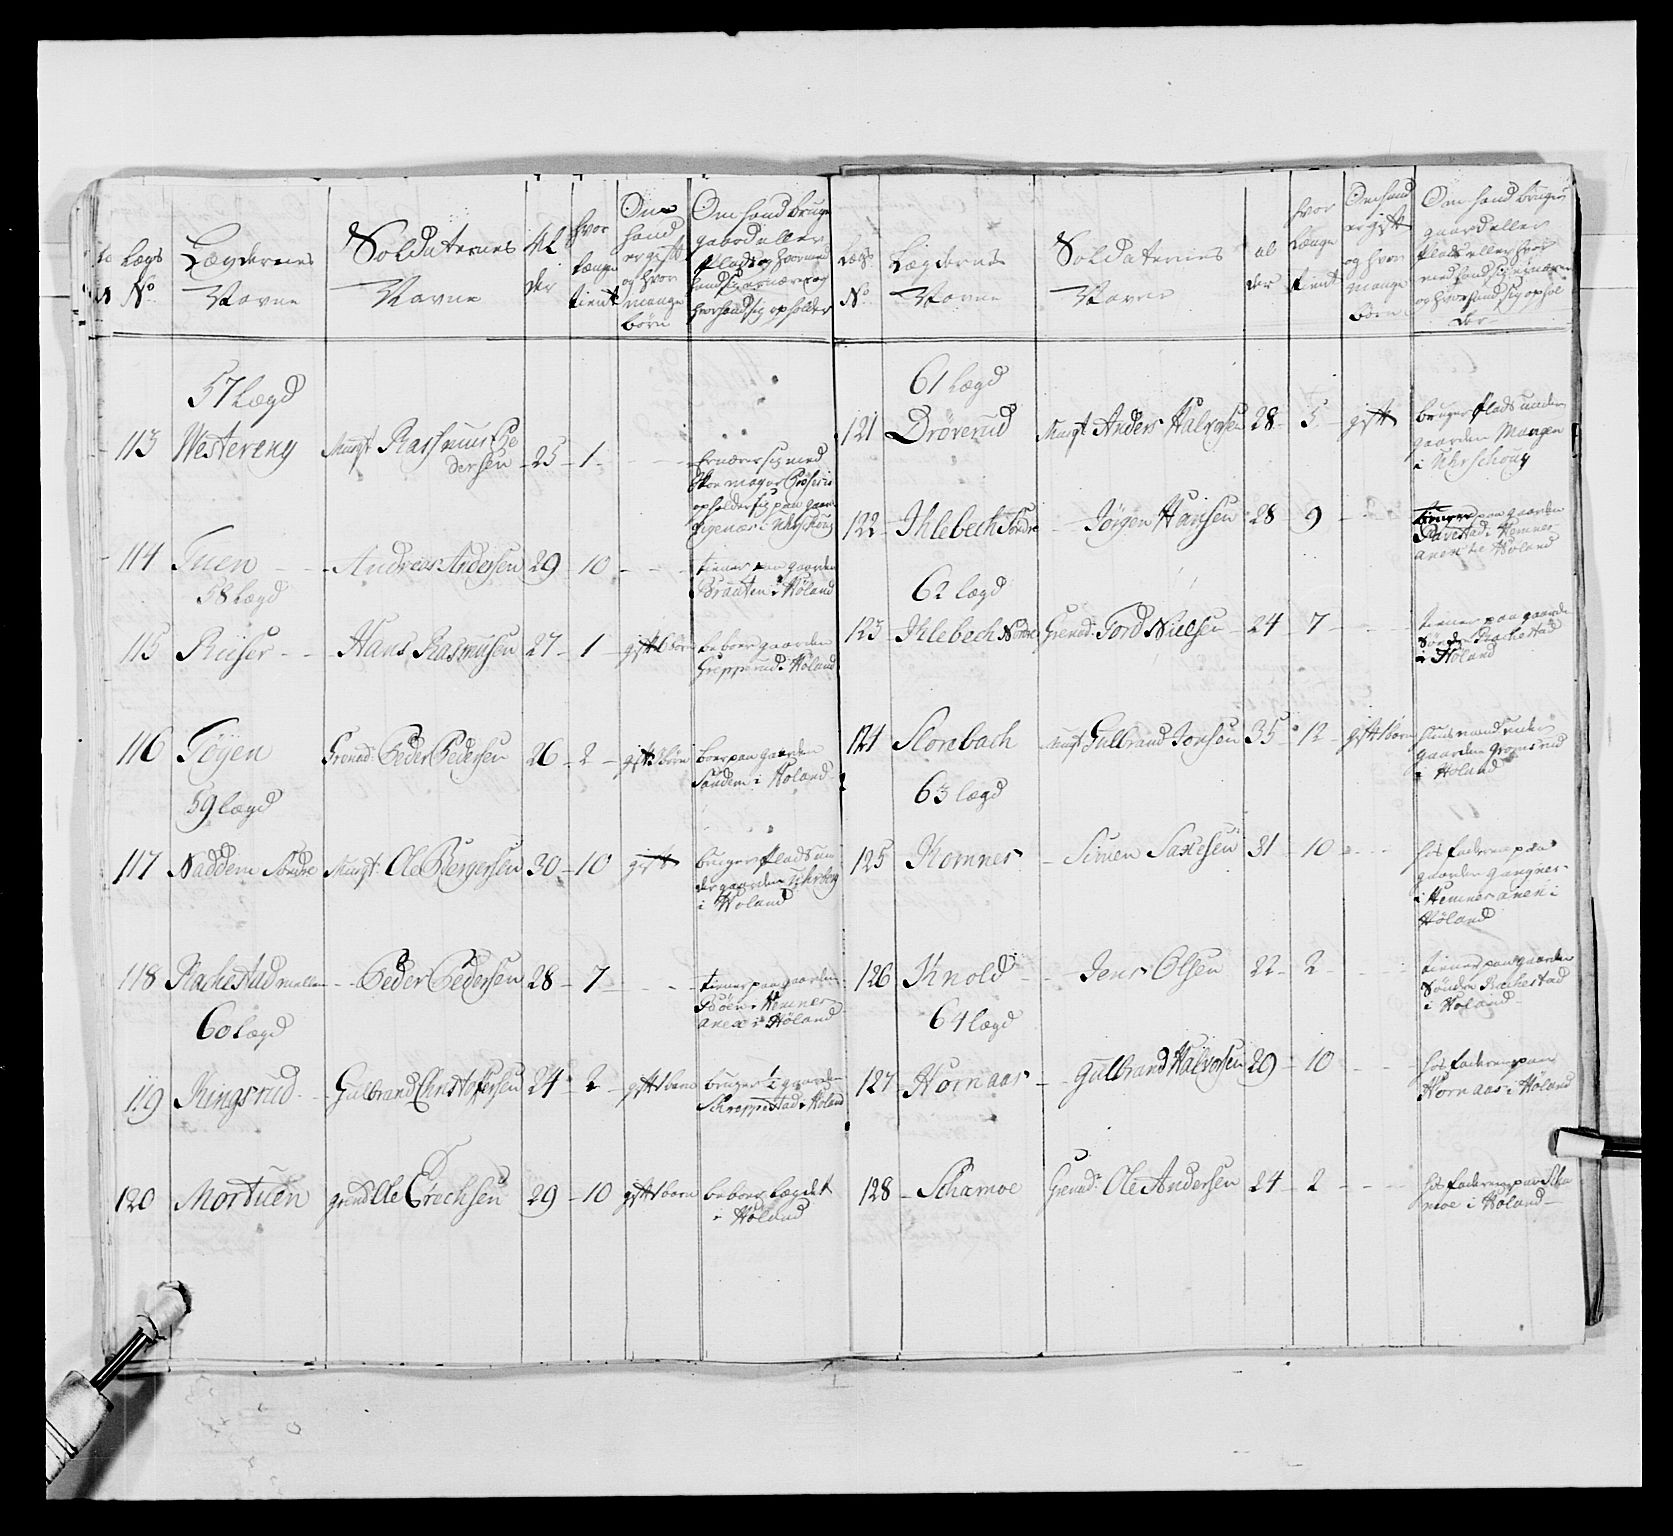 Lægs
No
Lægdernes
Navne
Soldaternes
Navne
Al
der
hvor
længe
tient
Om
hand
er gift
og hvor
mange
børn
Om hand bruger
gaard eller
Plads og hvormed
hand sig ernærer og
hvor hand sig opholder
57 Lægd
113 Westereng Musqt Rassmus Pe
dersen 25 1 Ernærer sig med
Skoemager
opholder sig paa gaar
i Uhrschoug
114 Tuen Andreas Andersen 29 10 tiener paa gaarden
Braaten i Høland
58 Lægd
115 Riiser Hans Rasmusen 27 1 gift 1 børn beboer gaarden
Grepperud i Høland
116 Tøyen Grenad: Peder Pedersen 26 2 gift 3 børn boer paa gaarden
Sandem i Høland
59 lægd
117 Naddem Søndre Musqt. Ole Bergersen 30 10 gift bruger Plads un
der gaarden
i Høland
118 Rachestad mellem Peder Pedersen 28 7 tiener paa gaarden
Bøen i Hemnes
anex i Høland
60 Lægd
119 Ringsrud Gulbrand Christophersen 24 2 gift 1 børn bruger ½ gaarden
Schreppestad i Høland
120 Mortuen grend: Ole Erechsen 29 10 gift 1 børn beboer lægdet
i Høland
Lægs
No
Lægdernes
Navne
Soldaternes
Navne
al
der
hvor
længe
tient
Om hand
er gift
og hvor
mange
børn
Om hand bruger
gaard eller
Plads eller hvor
med hand sig ernærer
og hvor hand sig ophol
der
61 lægd
121 Drøverud Musqt Anders Halvorsen 28 5 gift bruger Plads under
gaarden Mangen
i Uhrschoug
122 Ihlebech Søndre Jørgen Hansen 28 9 tiener paa gaarden
i Hemnes
anex til Høland
62 lægd
123 Ihlebech Nordre Grenad: Tord Nielsen 24 7 tiener paa gaarden
Søndre Rachestad
i Høland
124 Slorebach Musqt Gulbrand Jonsen 35 12 gift 1 børn Huusmand under
gaarden
i Høland
63 lægd
125 Komnes Simen Saxesen 31 10 hos faderen paa
gaarden
i Hemnes anex i
Høland
126 Knold Jens Olsen 22 2 tiener paa gaarden
Søndre Rachestad
i Høland
64 lægd
127 Hornaas Gulbrand Halvorsen 29 10 hos faderen paa
Hornaas i Høland
128 Schamoe Grenad: Ole Andersen 24 2 hos faderen paa Scha
moe i Høland